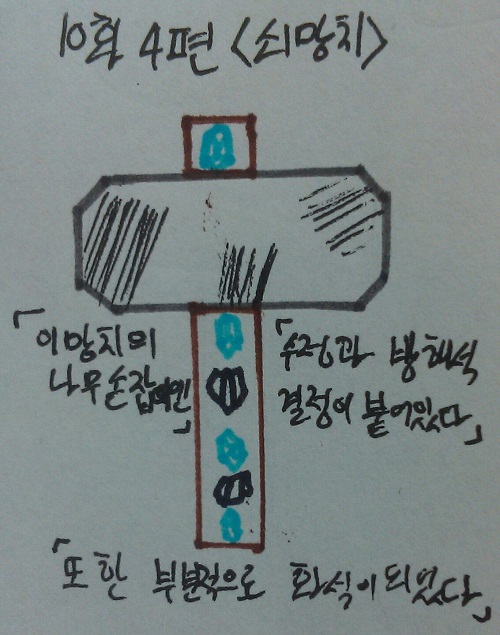 10회 4편 <쇠망치>
「이 망치의
나무손잡이엔」
「수정과 방해석
결정이 붙어있다」
「또한 부분적으로 화석이되었다」